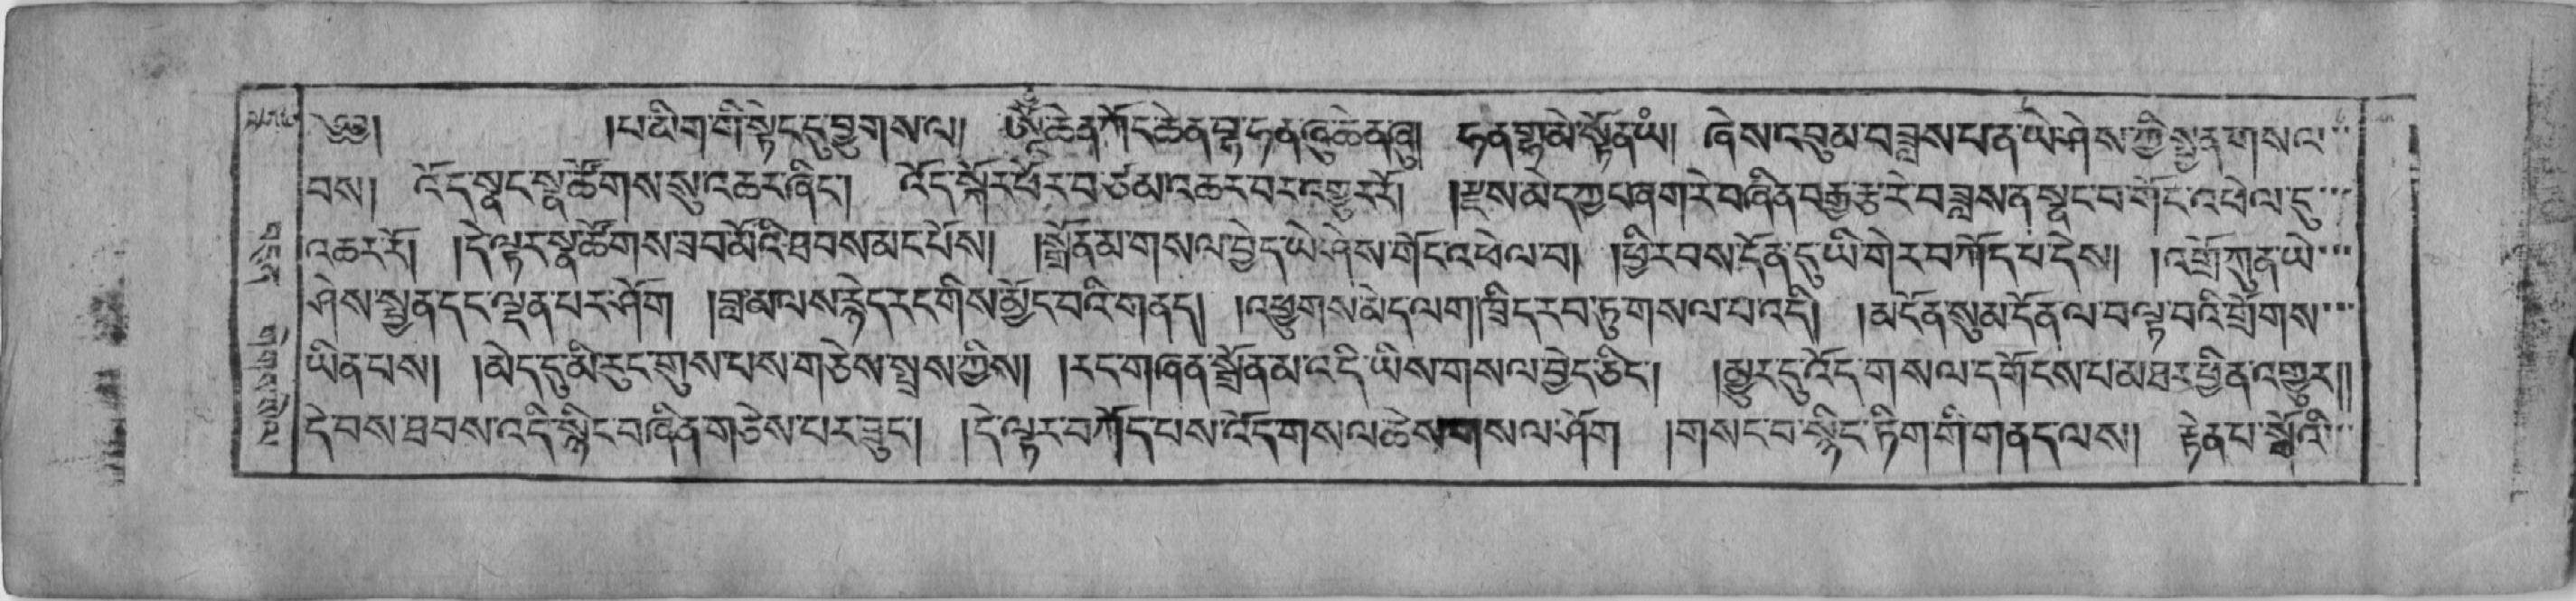 ༄༅། །པ་ཊི་ག་གི་སྟེང་དུ་བྱུགས་ལ། ཨོཾ་ཆེན་ཀོང་ཆེན་བྷ་ཧན་ཞུ་ཆེན་ཞུ། ཧན་གྷ་མེ་སྟོན་ཡཾ། ཞེས་འབུམ་བཟླས་པན་ཡེ་ཤེས་ཀྱི་སྤྱན་གསལ་
བས། འོད་སྣང་སྣ་ཚོགས་སུ་འཆར་ཞིང་། འོད་སྐོར་ཕོར་བ་ཙམ་འཆར་བར་འགྱུར་རོ། །རྫས་མེད་ཀྱང་ཞག་རེ་བཞིན་བརྒྱ་རྩ་རེ་བཟླས་ན་སྣང་བ་གོང་འཕེལ་དུ་
འཆར་རོ། །དེ་ལྟར་སྣ་ཚོགས་ཟབ་མོའི་ཐབས་མང་པོས། །སྒྲོན་མ་གསལ་བྱེད་ཡེ་ཤེས་གོང་འཕེལ་བ། །ཕྱི་རབས་དོན་དུ་ཡི་གེར་བཀོད་པ་དེས། །འགྲོ་ཀུན་ཡེ་
ཤེས་སྤྱན་དང་ལྡན་པར་ཤོག །བླ་མ་ལས་རྙེད་རང་གིས་མྱོང་བའི་གནད། །འཕྱུགས་མེད་ལག་ཁྲིད་རབ་ཏུ་གསལ་བ་འདི། །མངོན་སུམ་དོན་ལ་བལྟ་བའི་གྲོགས་
ཡིན་པས། །མེད་དུ་མི་རུང་གུས་པས་གཅེས་སྤྲས་ཀྱིས། །རང་གཞན་སྒྲོན་མ་འདི་ཡིས་གསལ་བྱེད་ཅིང་། །མྱུར་དུ་འོད་གསལ་དགོངས་པ་མཐར་ཕྱིན་འགྱུར།།
དེ་བས་ཐབས་འདི་སྙིང་བཞིན་གཅེས་པར་ཟུང་། །དེ་ལྟར་བཀོད་པས་འོད་གསལ་ཆེས་གསལ་ཤོག །གསང་བ་སྙིང་ཏིག་གི་གནད་ལས། རྟེན་པ་སྒོའི་